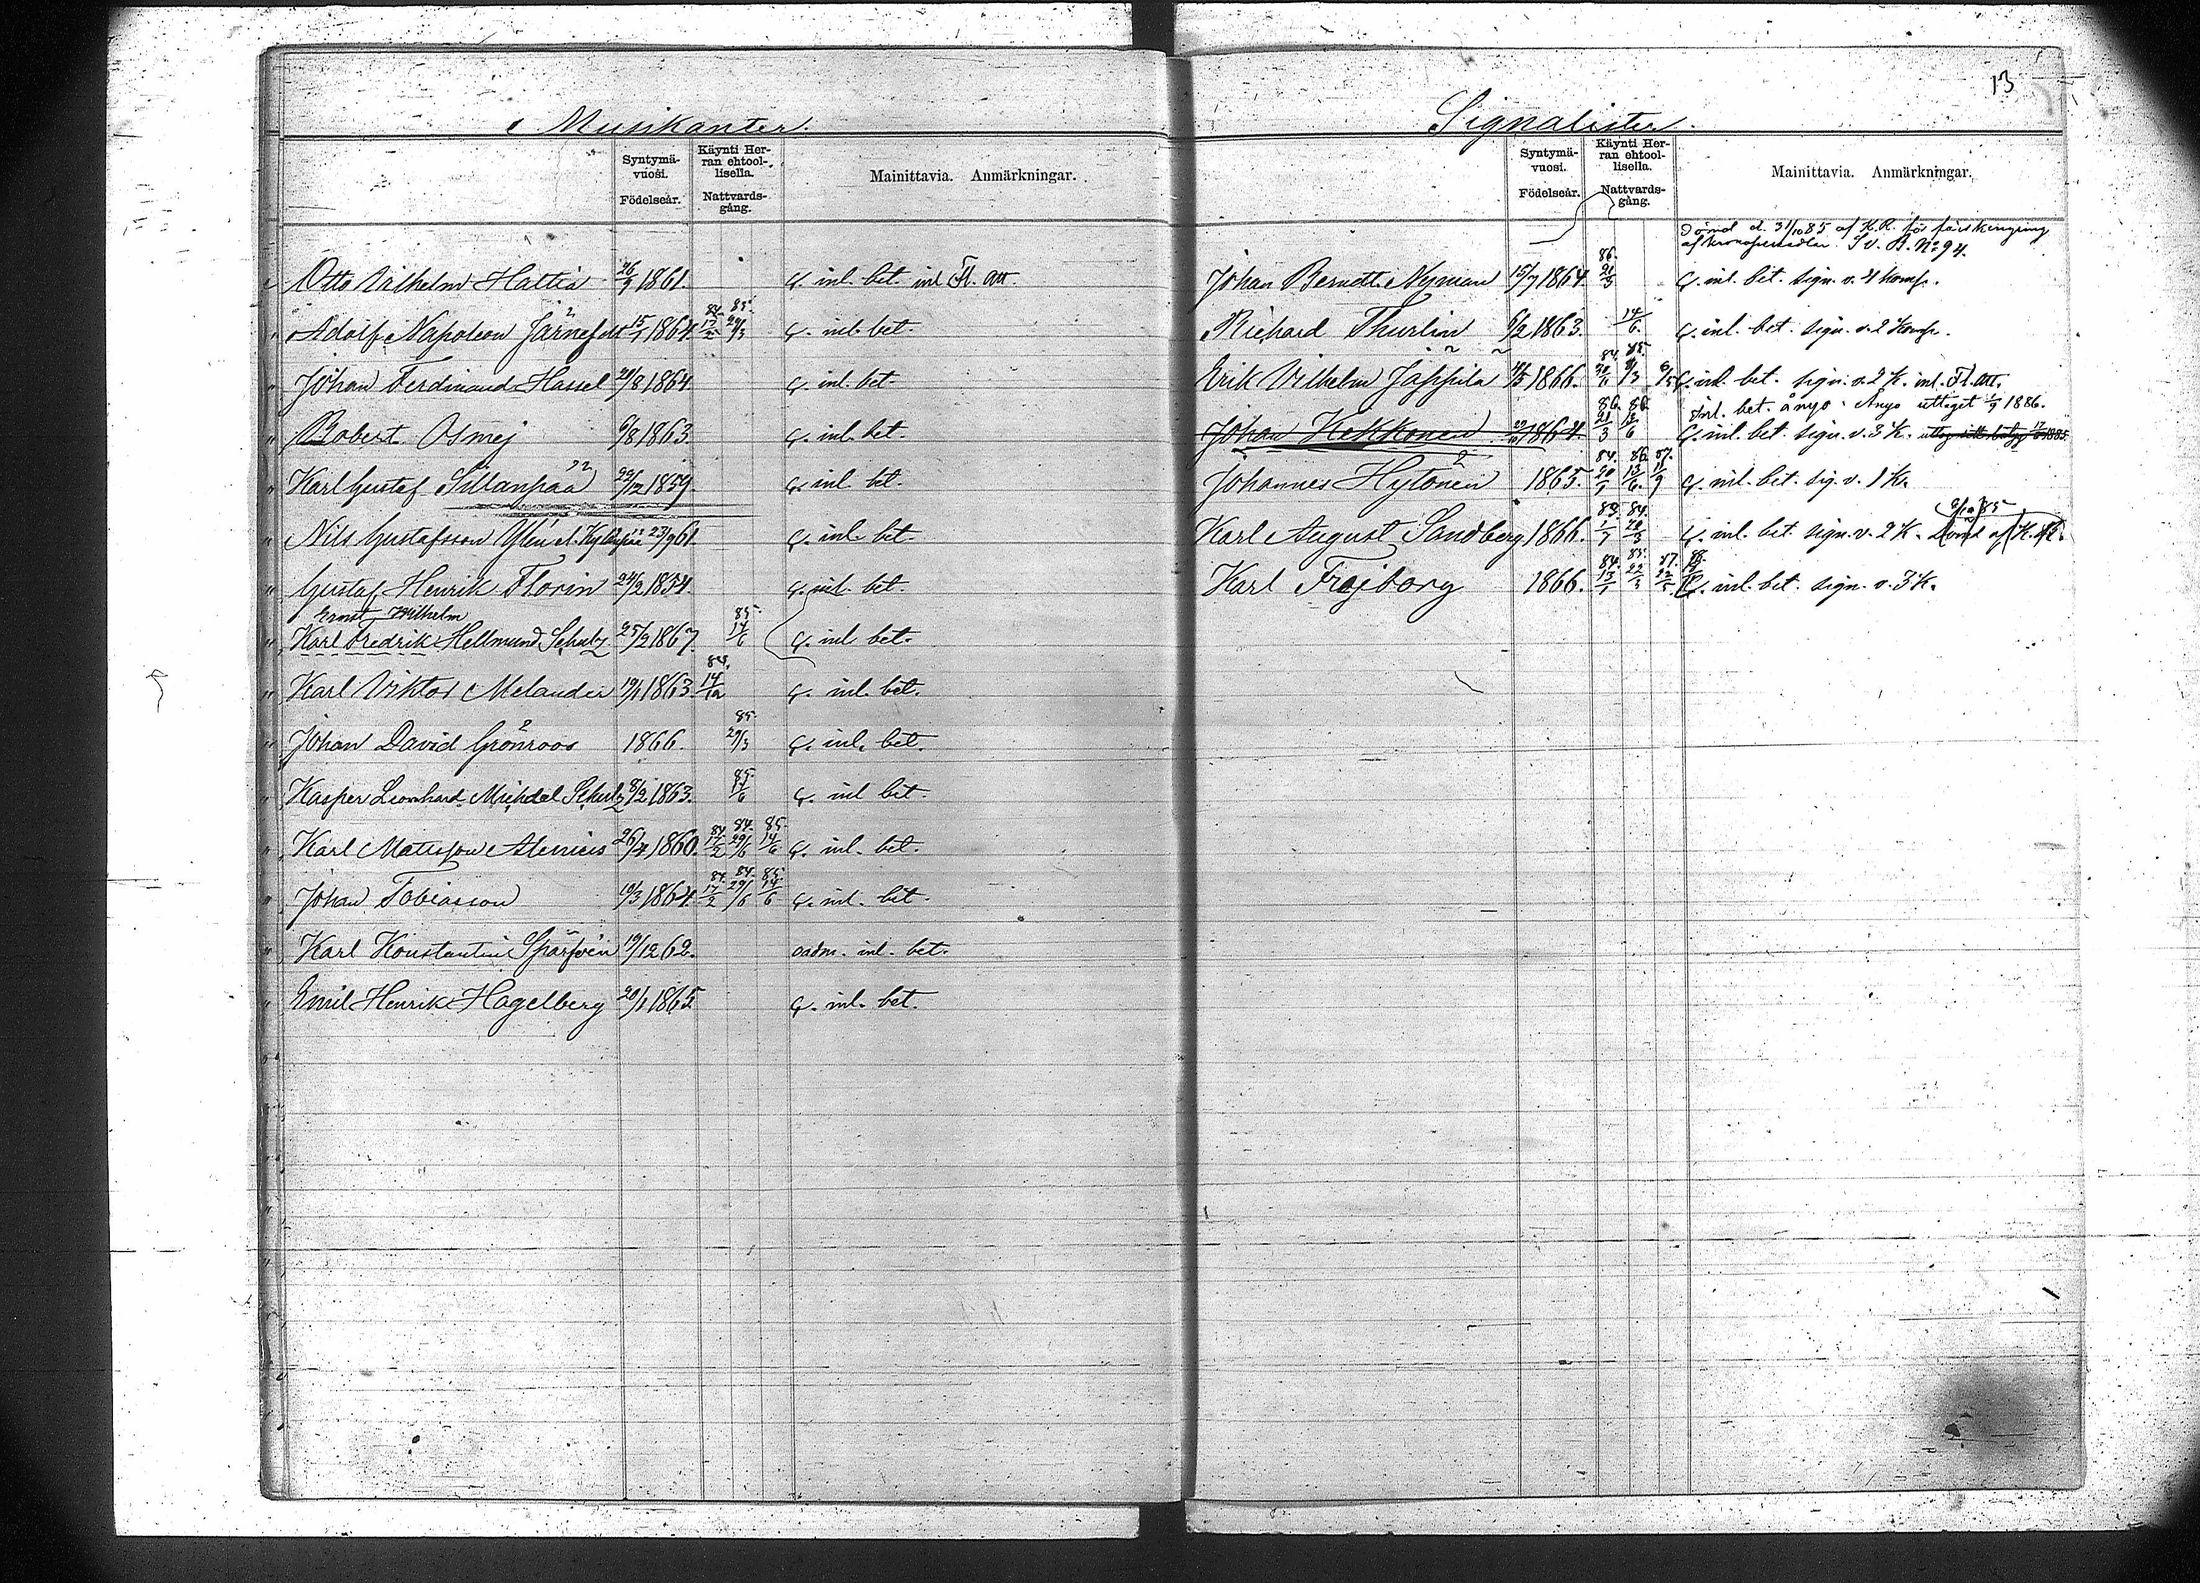 Musikanter.
Syntymä- vuosi. Födelseår.
Käynti Her- ran ehtool- lisella. Nattvards- gång.
Mainittavia. Anmärkningar.
Otto Vilhelm Hattia 26/9 1861. g. inl. bet. inl. Fl. att.
Adolf Napoleon Järnefelt 15/1 1864. 84. 17/2 85. 29/3 g. inl. bet.
Johan Ferdinand Hassel 21/8 1864 g. inl. bet.
Robert Osmej 6/8 1863. g. inl. bet.
Karl Gustaf Sillanpää 22/12 1859. g. inl. bet.
Nils Gustafsson Ylén 23/9 61. g. inl. bet.
Gustaf Henrik Florin 24/2 1854. g. inl. bet.
Ernst Wilhelm
Karl Fredrik Hellmund Schulz 25/2 1867. 85. 14/6 g. inl. bet.
Karl Viktor Melander 19/1 1863. 14/12 g. inl. bet.
Johan David Grönroos 1866. 85. 29/3 g. inl. bet.
Kasper Leonhard Michael Schulz 8/2 1863. 85. 14/6 g. inl. bet.
Karl Matsson Alenius 26/4 1860. 84. 17/2 84. 29/6 85. 14/6 g. inl. bet.
Johan Tobiasson 19/3 1864. 84. 17/2 84. 29/6 85. 14/6 g. inl. bet.
Karl Konstantin Sparfvén 19/12 62. oadm. inl. bet.
Emil Henrik Hagelberg 20/1 1865 g. inl. bet.
13
Signalister.
Syntymä- vuosi. Födelseår.
Käynti Her- ran ehtool- lisella. Nattvards- gång.
Mainittavia. Anmärkningar.
Dömd d. 31/10 85 af K.R. för förskingring
af kronopersedlar. Sv. A. No 94.
Johan Berndt Nyman 15/7 1864. 86. 21/3 g. inl. bet. sign. v. 4 komp.
Richard Thurlin 6/2 1863. 14/6. g. inl. bet. sign. v. 2 komp.
Erik Vilhelm Jäppilä 1866. 84. 85. g. inl. bet. sign. v. 2 K. inl. Fl. att.
Inl. bet. ånyo. Ånyo uttaget 1/9 1886.
Johan Kekkonen 1864. 86. 21/3 86. 13/6 g. inl. bet. sign. v. 3 K.
Johannes Hytönen 1865. 84. 86. 13/6. 87. g. inl. bet. sig. v. 1 K.
Karl August Sandberg 1866. 83. 84. g. inl. bet. sign. v. 2 K. Dömd af K.R.
Karl Frejborg 1866. 84. 85. 87. g. inl. bet. sign. v. 3 K.